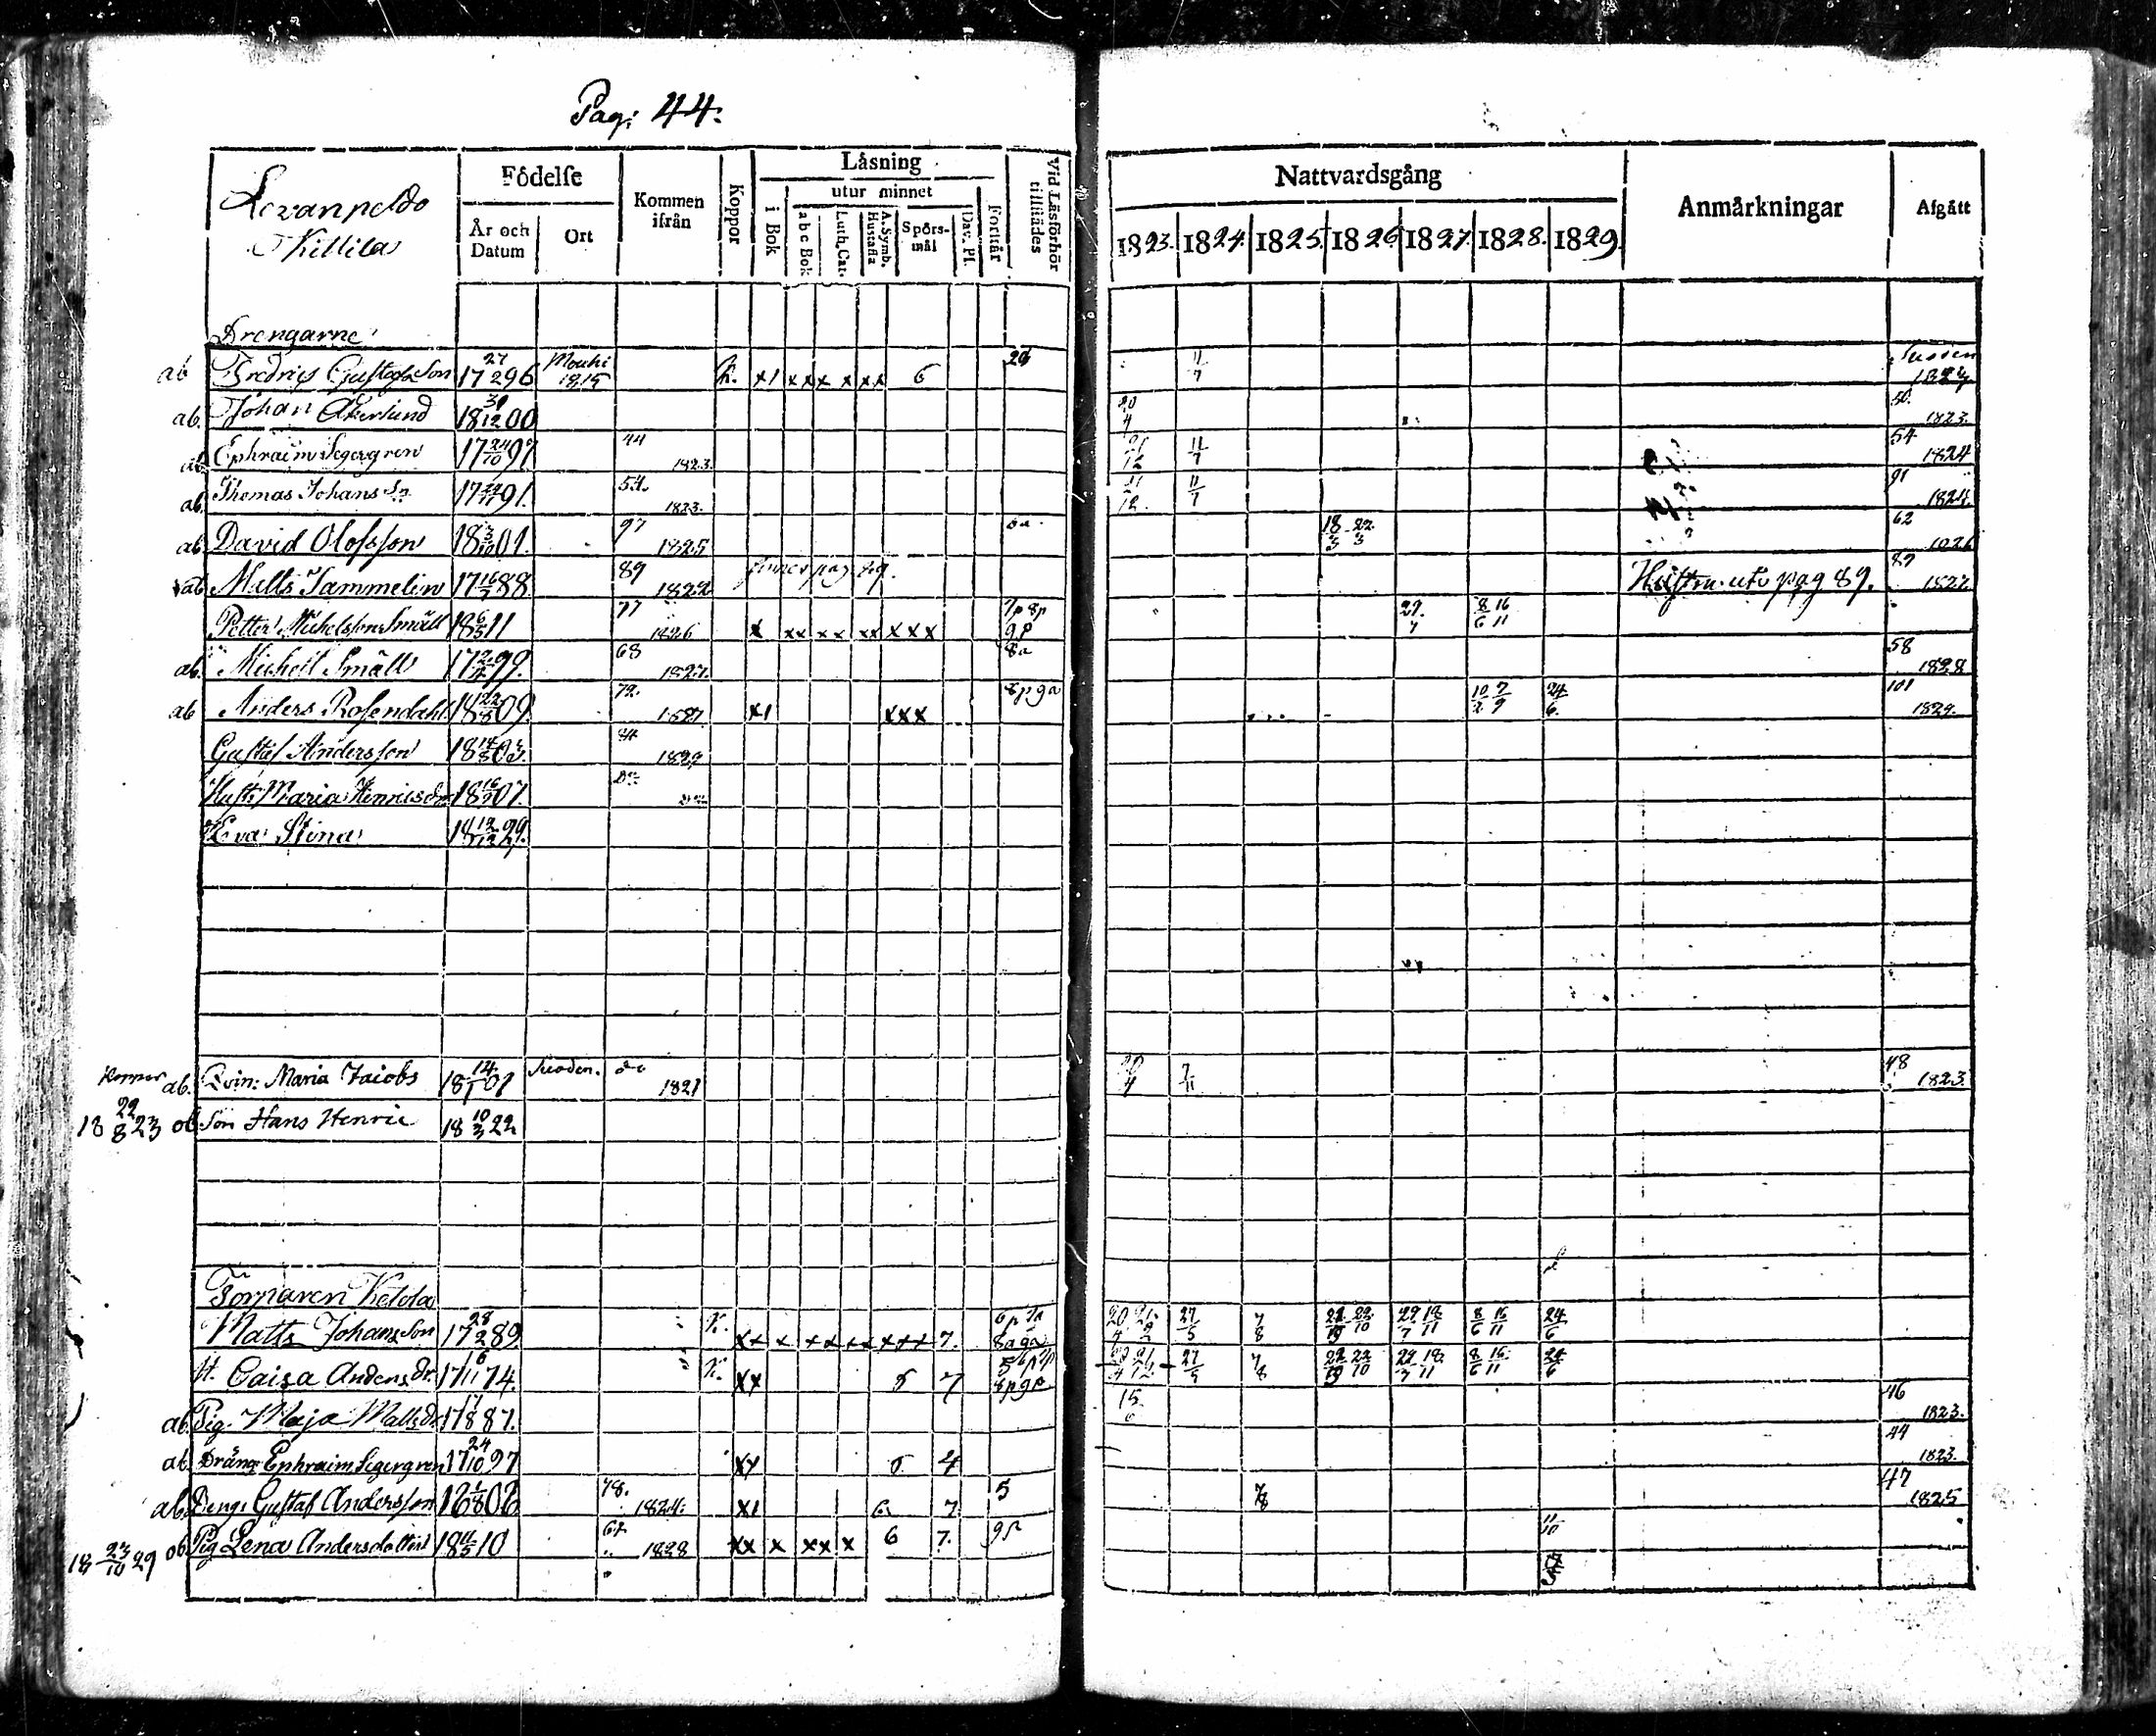 Pag: 44.
Levanpeldo
Killila
Födelse
År och Datum
Ort
Kommen ifrån
Koppor
Läsning
i Bok
utur minnet
a b c Bok
Luth. Cat.
A. Symb. Hustafla
Spörs-mål
Dav. Ps.
Förstår
Vid Läsförhör tillstädes
Nattvardsgång
1823. 1824. 1825. 1826. 1827. 1828. 1829.
Anmärkningar
Afgått
Drengarne
ab Fredric Gustafsson 17 27/2 96 Mouhi 1815 K. x1 xxx x xx 6 11/7
ab. Johan Åkerlund 18 31/12 00 20/4 1823.
ab. Ephraim Segergren 17 24/10 97 44 1823. 11/7 54 1824
ab. Thomas Johans Sn 1791. 54. 1823. 11/7 91 1824.
ab. David Olofsson 18 3/10 01. 97 1825 18/3 22/3 62 1826
ab Matts Sammelin 17 88 89 1822 finnes pag 89. Hustrun uti pag 89. 89 1827.
Petter Michelsson Småll 18 6/5 11 77 1826 x xx xx xx xxx 7p 8p 9p 8/6 16/11
ab. Michel Småll 1799. 68 1827. 8a 58 1828
ab Anders Rosendahl 18 22/8 09. 72. x1 xxx 8p 9a 10/2 7/9 24/6. 101 1829.
Gustaf Andersson 18 84 1829
Hustr Maria Henricsdr 18 07. Do Do
Eva Stina 18 12/12 29.
Koppor ab. Qvin: Maria Jacobs 18 14/1 01 do 1821 20/4 7/11 48 1823.
18 22/8 23 ob Son Hans Henric 18 10/3 22
Torparen Ketola
Matts Johansson 17 28/2 89 K. xx x xx xx xxx 7. 6p 7a 8a 9a 27/5 7/8 22/10 29/7 18/11 8/6 16/11 24/6
H. Caisa Anders Dr. 17 6/11 74. K. xx 5 7 8p 9p 27/5 7/8 22/10 29/7 18/11 8/6 16/11 24/6
ab. Pig. Maja Matts Dr 17 87. 15/6 46 1823.
ab. Dräng Ephraim Segergren 17 24/10 97 xx 5 4 44 1823.
ab. Deng: Gustaf Andersson 78. 1824. x1 6. 7 5 7/8 47 1825
18 23/10 29 ob. Pig Lena Andersdotter 18 10 1828 xx x xx x 6 7. 9p 11/10